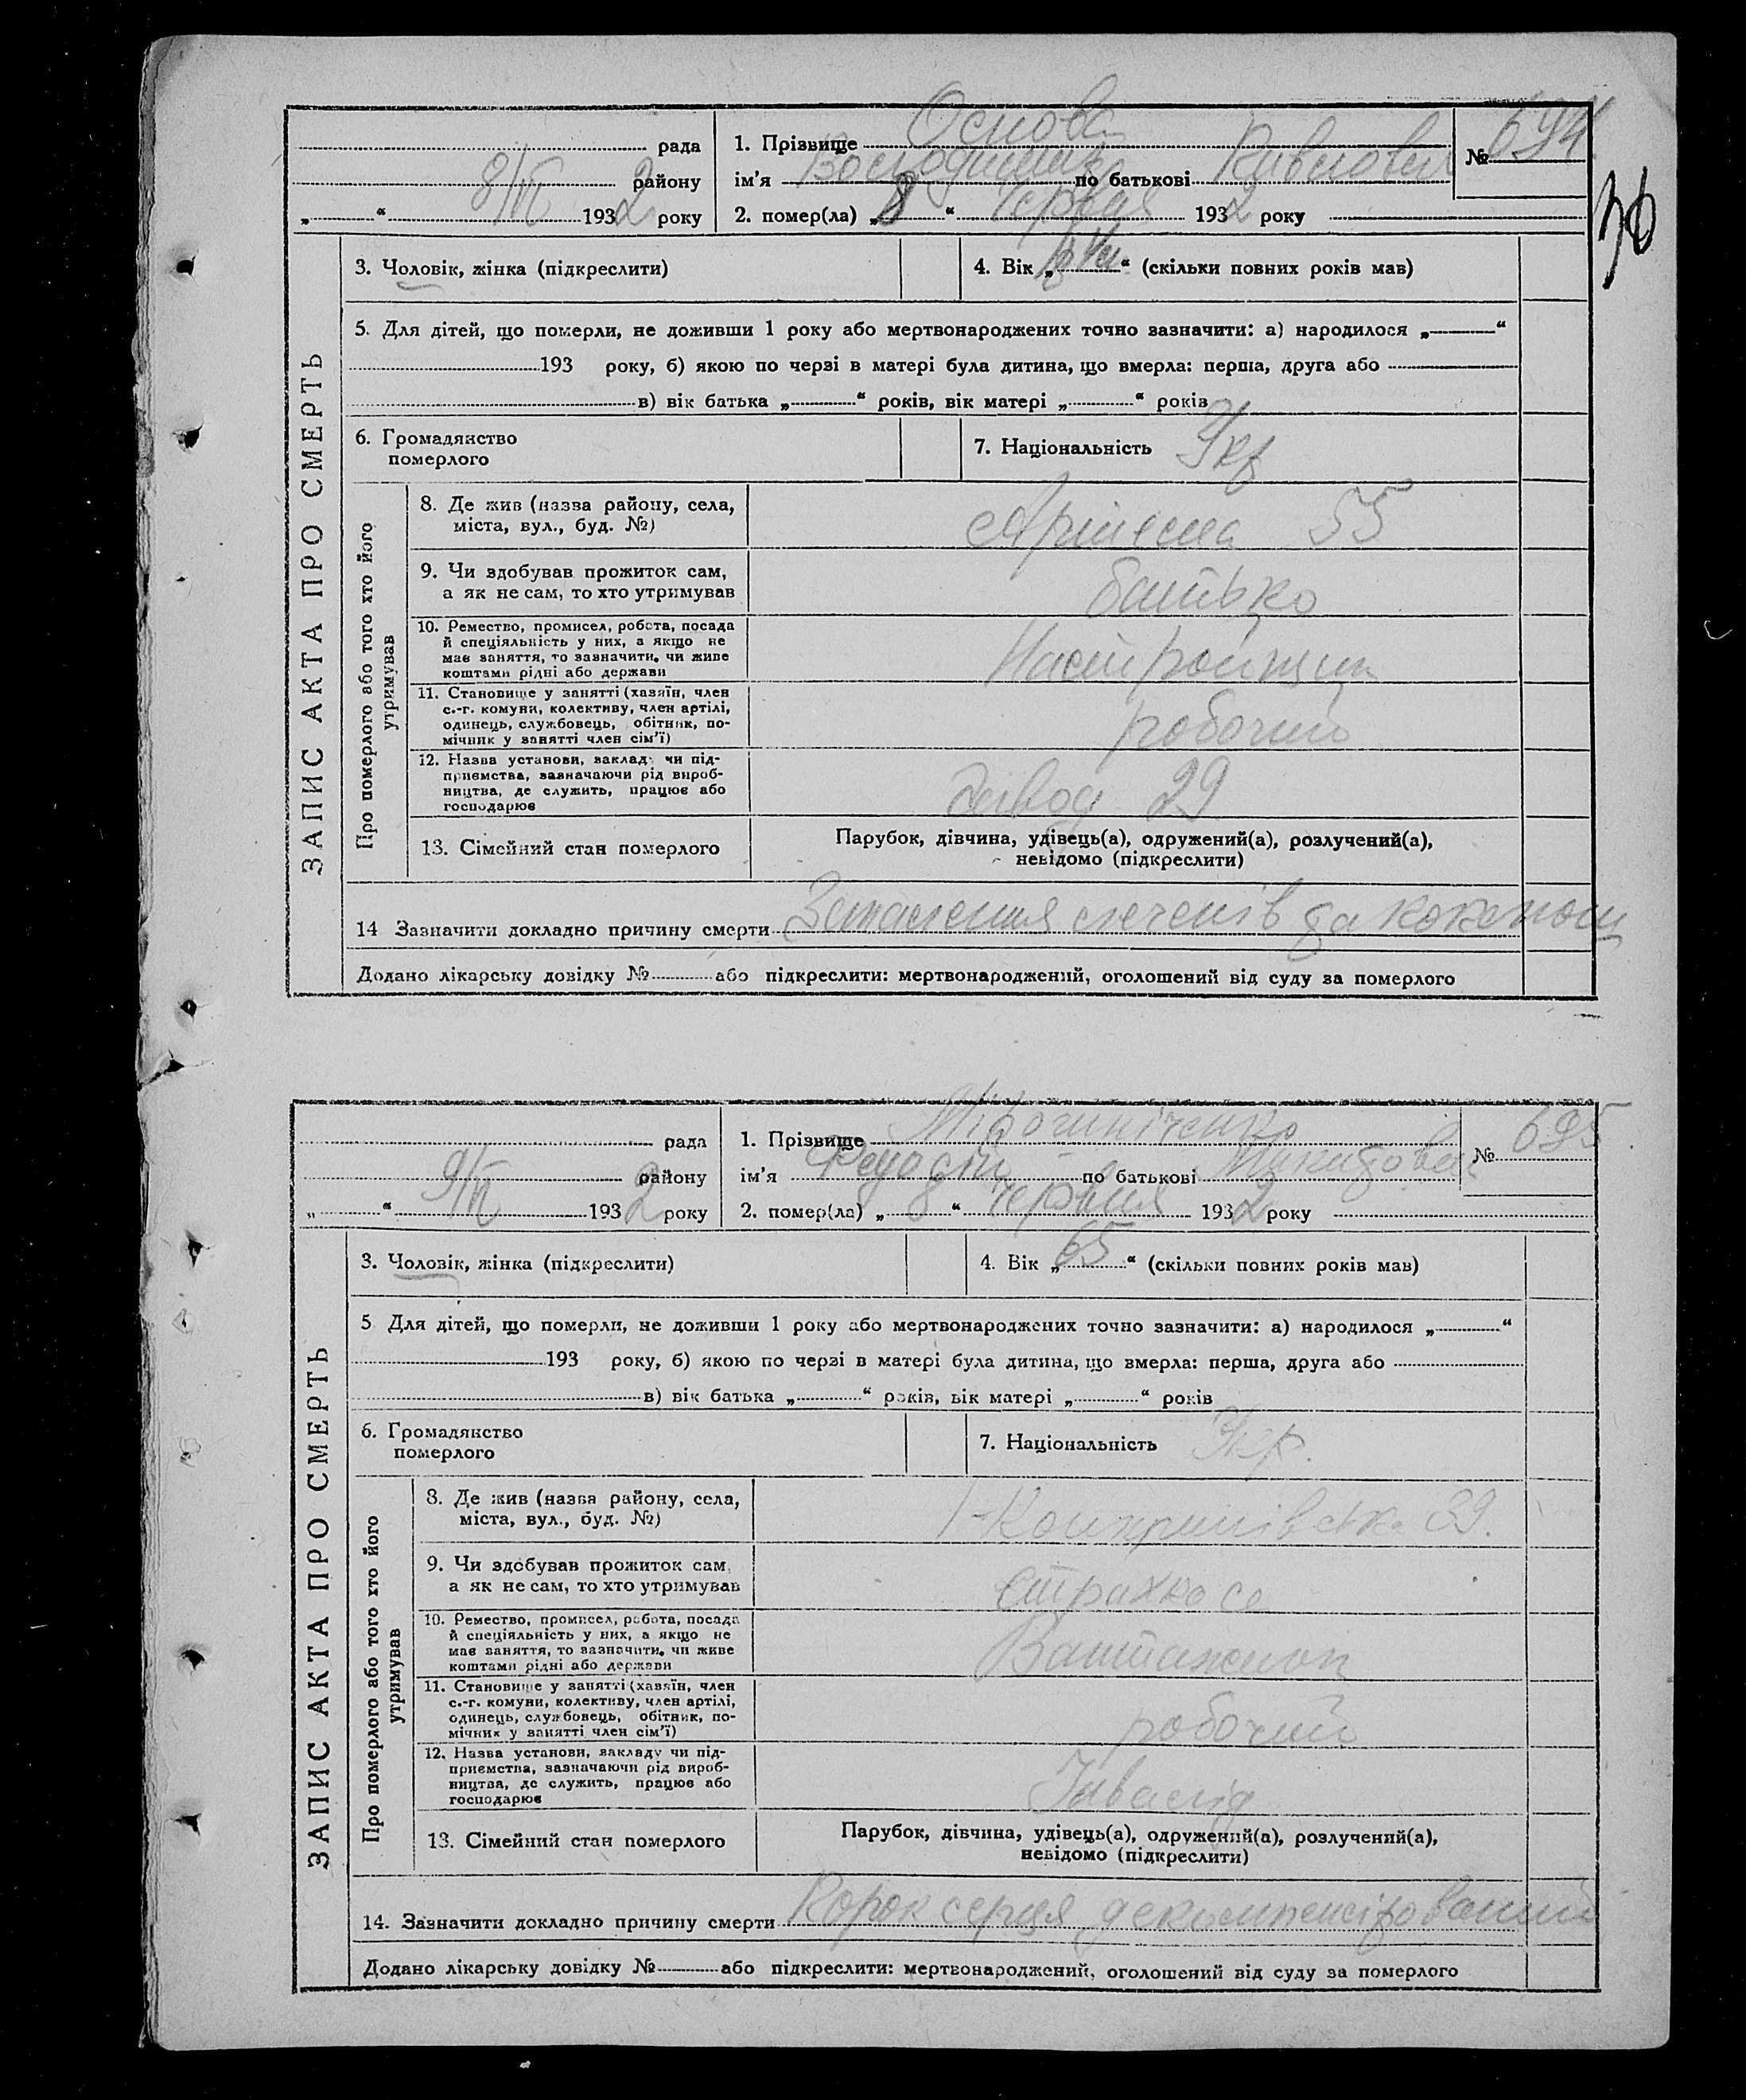 ЗАПИС АКТА ПРО СМЕРТЬ
рада
району
8/VI 1932 року
1. Прізвище Основа
ім'я по батькові
2. помер(ла) „8“ Червня 1932 року
№ 694
36
3. Чоловік, жінка (підкреслити)
4. Вік „ “ (скільки повних років мав)
5. Для дітей, що померли, не доживши 1 року або мертвонароджених точно зазначити: а) народилося „ “
193 року, б) якою по черзі в матері була дитина, що вмерла: перша, друга або
в) вік батька „ “ років, вік матері „ “ років
6. Громадянство
померлого
7. Національність Укр
Про померлого або того хто його
утримував
8. Де жив (назва району, села,
міста, вул., буд. №)
55
9. Чи здобував прожиток сам,
а як не сам, то хто утримував
батько
10. Ремество, промисел, робота, посада
й спеціяльність у них, а якщо не
має заняття, то зазначити, чи живе
коштами рідні або держави
Настройщик
11. Становище у занятті (хазяїн, член
с.-г. комуни, колективу, член артілі,
одинець, службовець, обітник, по-
мічник у занятті член сім'ї)
робочий
12. Назва установи, закладу чи під-
приємства, зазначаючи рід вироб-
ництва, де служить, працює або
господарює
Завод 29
13. Сімейний стан померлого
Парубок, дівчина, удівець(а), одружений(а), розлучений(а),
невідомо (підкреслити)
14 Зазначити докладно причину смерти Запалення легенів
Додано лікарську довідку № або підкреслити: мертвонароджений, оголошений від суду за померлого
ЗАПИС АКТА ПРО СМЕРТЬ
рада
району
„ “ 9/VI 1932 року
1. Прізвище Мірошніченко
ім'я Федосій по батькові Микитович
2. помер(ла) „8“ Червня 1932 року
№ 695
3. Чоловік, жінка (підкреслити)
4. Вік „65“ (скільки повних років мав)
5 Для дітей, що померли, не доживши 1 року або мертвонароджених точно зазначити: а) народилося „ “
193 року, б) якою по черзі в матері була дитина, що вмерла: перша, друга або
в) вік батька „ “ років, вік матері „ “ років
6. Громадянство
померлого
7. Національність Укр.
Про померлого або того хто його
утримував
8. Де жив (назва району, села,
міста, вул., буд. №)
39.
9. Чи здобував прожиток сам,
а як не сам, то хто утримував
Страхкаса
10. Ремество, промисел, робота, посада
й спеціяльність у них, а якщо не
має заняття, то зазначити, чи живе
коштами рідні або держави
Вантажник
11. Становище у занятті (хазяїн, член
с.-г. комуни, колективу, член артілі,
одинець, службовець, обітник, по-
мічник у занятті член сім'ї)
робочий
12. Назва установи, закладу чи під-
приємства, зазначаючи рід вироб-
ництва, де служить, працює або
господарює
Інвалід
13. Сімейний стан померлого
Парубок, дівчина, удівець(а), одружений(а), розлучений(а),
невідомо (підкреслити)
14. Зазначити докладно причину смерти Порок серця декомпенсірований
Додано лікарську довідку № або підкреслити: мертвонароджений, оголошений від суду за померлого